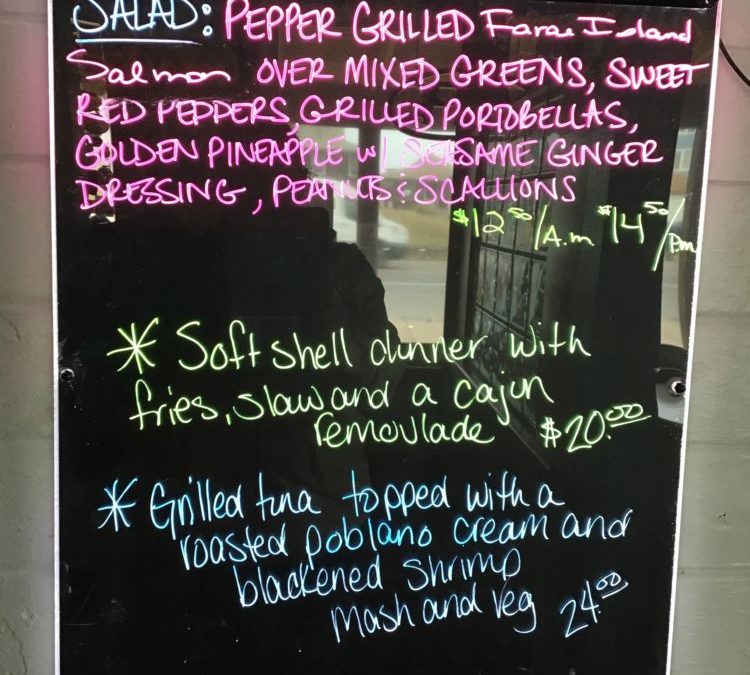 SALAD: PEPPER GRILLED Faroe Island
Salmon OVER MIXED GREENS, SWEET
RED PEPPERS, GRILLED PORTOBELLAS,
GOLDEN PINEAPPLE w/ SEASAME GINGER
DRESSING, PEANUTS & SCALLIONS
$12.50/A.m $14.50/Pm
* Soft shell dinner with
fries, slaw and a cajun
remoulade $20.00
* Grilled tuna topped with a
roasted poblano cream and
blackened shrimp
mash and veg 24.00